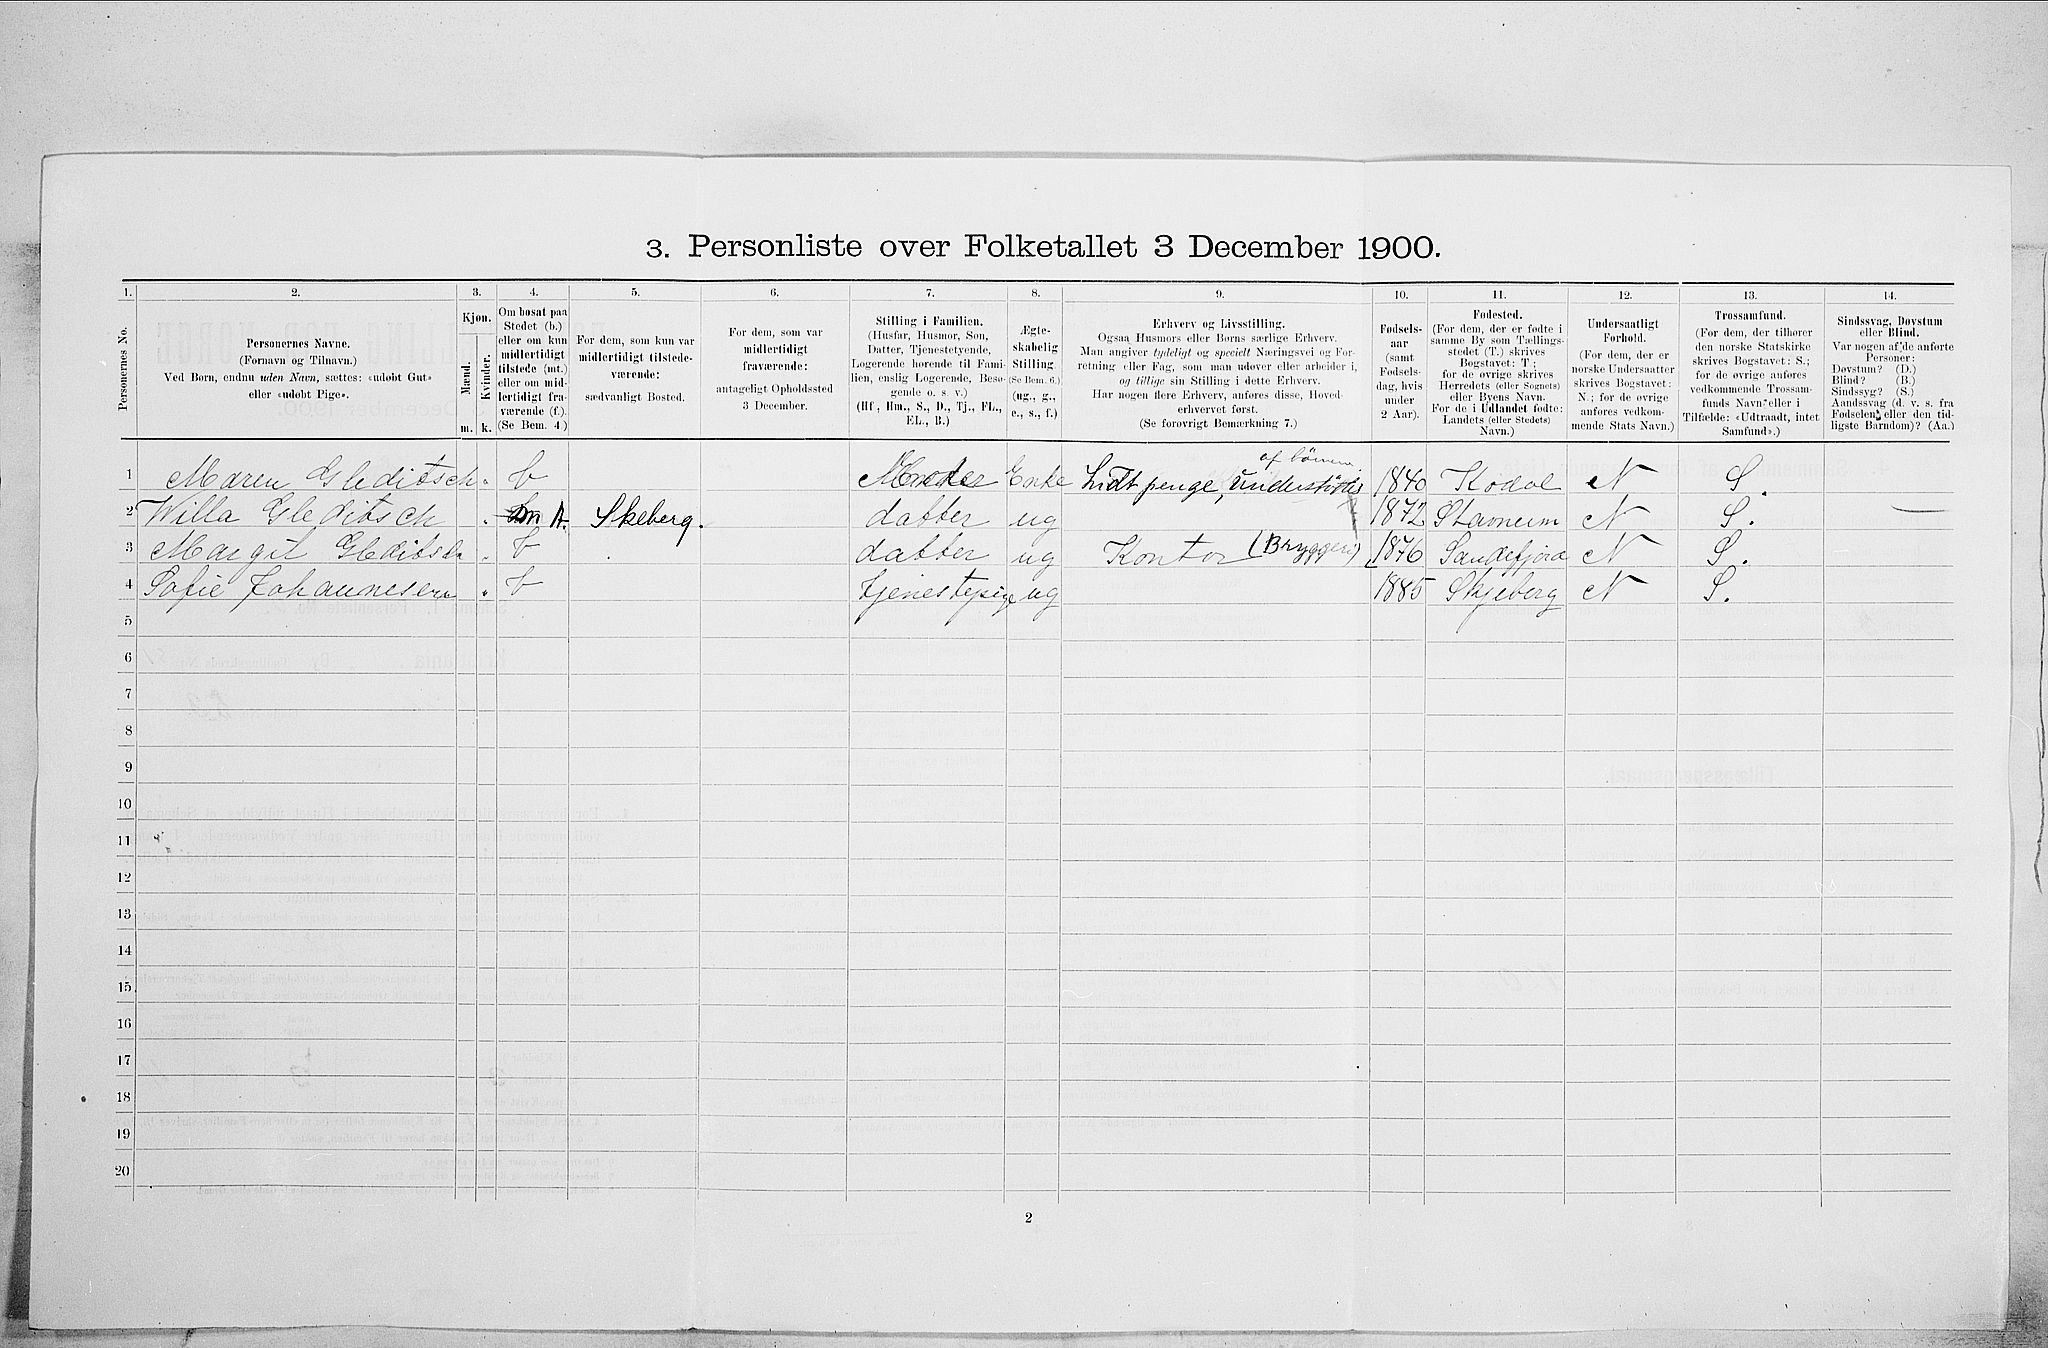 3. Personliste over Folketallet 3 December 1900.
1. 2. 3. 4. 5. 6. 7. 8. 9. 10. 11. 12. 13. 14.
Personernes No.
Personernes Navne.
(Fornavn og Tilnavn.)
Ved Børn, endnu uden Navn, sættes: «udøbt Gut»
eller «udøbt Pige».
Kjøn.
Mænd.
Kvinder.
m. k.
Om bosat paa
Stedet (b.)
eller om kun
midlertidigt
tilstede (mt.)
eller om mid-
lertidigt fra-
værende (f.).
(Se Bem. 4.)
For dem, som kun var
midlertidigt tilstede-
værende:
sædvanligt Bosted.
For dem, som var
midlertidigt
fraværende:
antageligt Opholdssted
3 December.
Stilling i Familien.
(Husfar, Husmor, Søn,
Datter, Tjenestetyende,
Logerende hørende til Fami-
lien, enslig Logerende, Besø-
gende o. s. v.)
(Hf., Hm., S., D., Tj., FL.,
EL., B.)
Ægte-
skabelig
Stilling.
(Se Bem. 6.)
(ug., g.,
e., s., f.)
Erhverv og Livsstilling.
Ogsaa Husmors eller Børns særlige Erhverv.
Man angiver tydeligt og specielt Næringsvei og For-
retning eller Fag, som man udøver eller arbeider i,
og tillige sin Stilling i dette Erhverv.
Har nogen flere Erhverv, anføres disse, Hoved-
erhvervet først.
(Se forøvrigt Bemærkning 7.)
Fødsels-
aar
(samt
Fødsels-
dag, hvis
under
2 Aar).
Fødested.
(For dem, der er fødte i
samme By som Tællings-
stedet (T.) skrives
Bogstavet: T;
for de øvrige skrives
Herredets (eller Sognets)
eller Byens Navn.
For de i Udlandet fødte:
Landets (eller Stedets)
Navn.)
Undersaatligt
Forhold.
(For dem, der er
norske Undersaatter
skrives Bogstavet:
N.; for de øvrige
anføres vedkom-
mende Stats Navn.)
Trossamfund.
(For dem, der tilhører
den norske Statskirke
skrives Bogstavet: S.;
for de øvrige anføres
vedkommende Trossam-
funds Navn eller i
Tilfælde: «Udtraadt, intet
Samfund».)
Sindssvag, Døvstum
eller Blind.
Var nogen af de anførte
Personer:
Døvstum? (D.)
Blind? (B.)
Sindssyg? (S.)
Aandssvag (d. v. s. fra
Fødselen eller den tid-
ligste Barndom)? (Aa.)
1 Maren Gleditsch b Moder Enke Lidt penge, understøttes af børnene 1840 Kodal N S.
2 Willa Gleditsch Skeberg. datter ug 1872 N S.
3 Margit Gleditsch b datter ug Kontor (Bryggeri) 1876 Sandefjord N S.
4 Sofie Johannesen b tjenestepige ug 1885 Skjeberg N S.
5
6
7
8
9
10
11
12
13
14
15
16
17
18
19
20
2